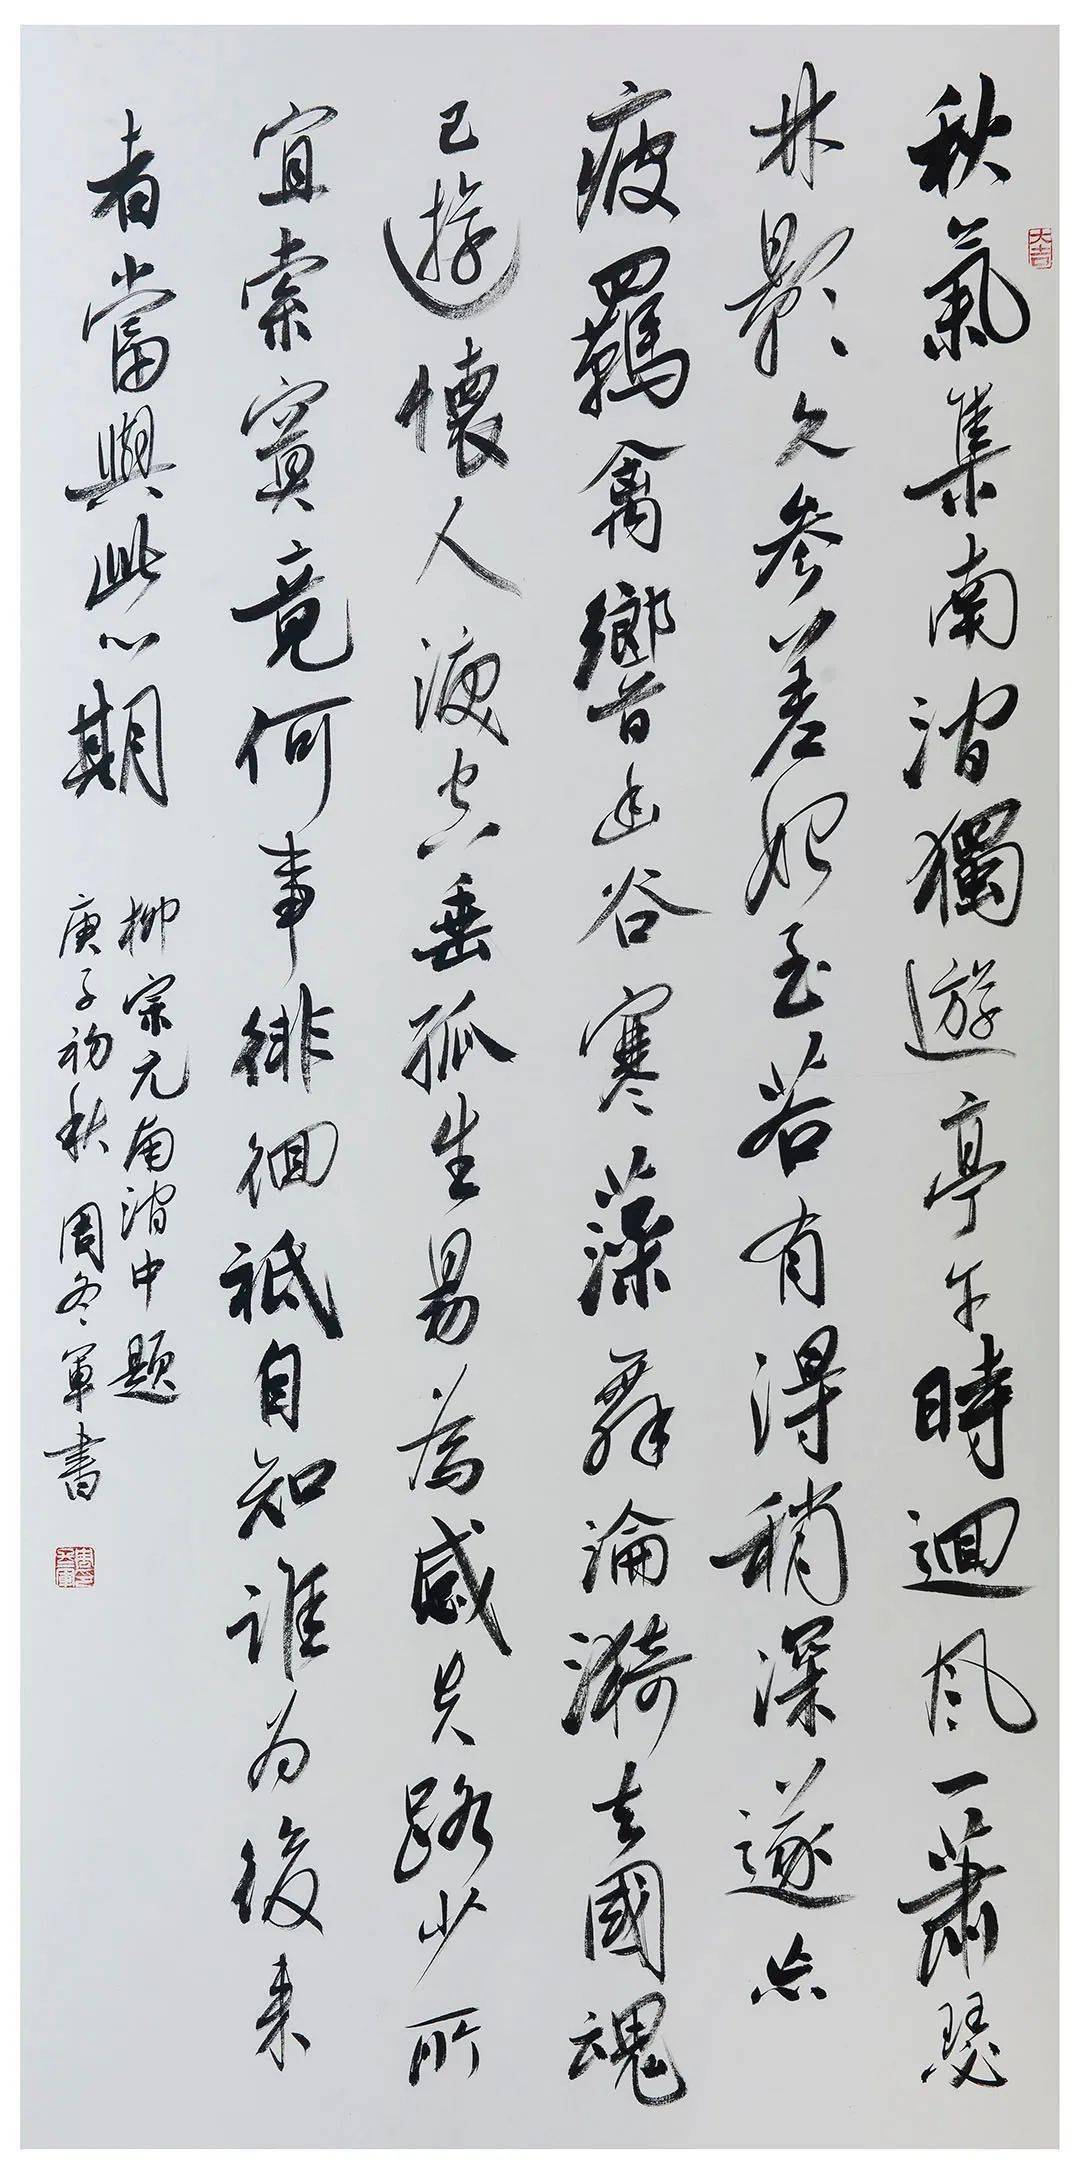 秋氣集南澗獨遊亭午時迴風一蕭瑟
林影久參差始至若有得稍深遂忘
疲羈禽響幽谷寒藻舞淪漪去國魂
已遊懷人淚空垂孤生易為感失路少所
宜索寞竟何事徘徊祇自知誰為後来
者當與此心期
柳宗元南澗中題
庚子初秋 周冬軍書
大吉